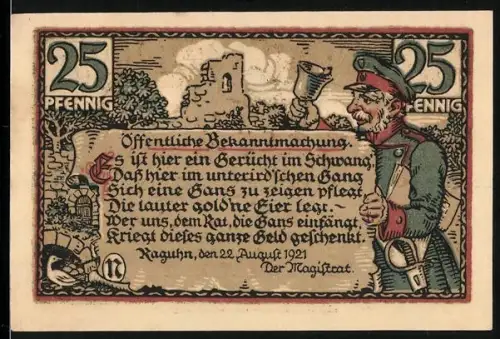 25 25
PFENNIG PFENNIG
Öffentliche Bekanntmachung.
Es ist hier ein Gerücht im Schwang
Daß hier im unterird'schen Gang
Sich eine Gans zu zeigen pflegt,
Die lauter goldne Eier legt.-
Wer uns, dem Rat, die Gans einfängt,
Kriegt dieses ganze Geld geschenkt.
Raguhn, den 22. August 1921
Der Magistrat.
N